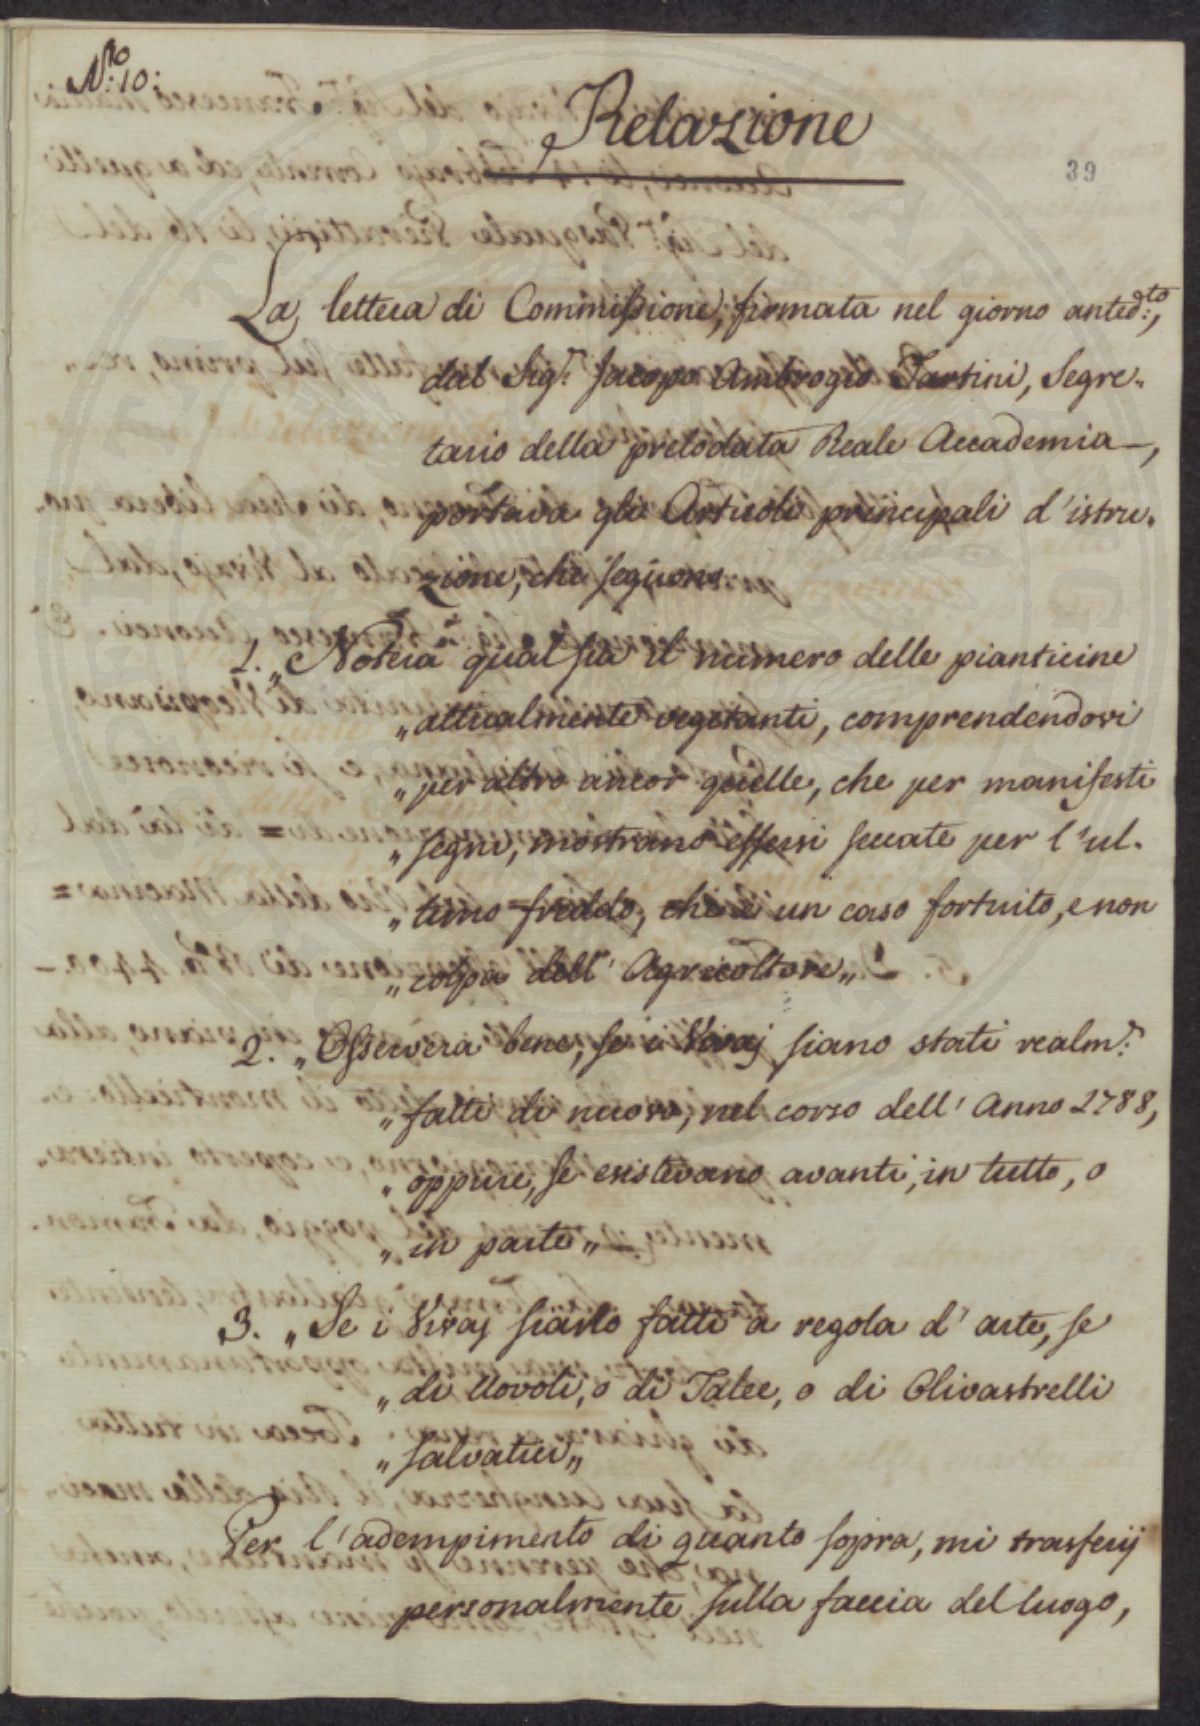 N.ro 10:
Relazione
39
La lettera di Commissione, firmata nel giorno anted:to,
dal Sig.r Jacopo Ambrogio Tartini, Segre„
tario della prelodata Reale Accademia—,
portava gli Articoli principali d'istru„
zione, che seguono.
1. „Noterà qual sia il numero delle pianticine
„attualmente vegetanti, comprendendovi
„per altro ancor quelle, che per manifesti
„segni, mostrano essersi seccate per l'ul„
„timo freddo, che è un caso fortuito, e non
„colpa dell' Agricoltore„
2. „Osserverà bene, se i Vivaj siano stati realm.e
„fatti di nuovo, nel corso dell' Anno 1788,
„oppure, se esistevano avanti, in tutto, o
„in parte„
3. „Se i Vivaj siano fatti a regola d'arte, se
„di Uovoli, o di Talee, o di Olivastrelli
„salvatici„
Per l'adempimento di quanto sopra, mi trasferij
personalmente sulla faccia del luogo,